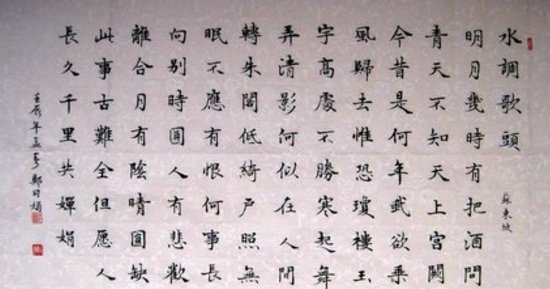 水調歌頭
蘇東坡
明月幾時有把酒問
青天不知天上宮闕
今昔是何年我欲乘
風歸去惟恐瓊樓玉
宇高處不勝寒起舞
弄清影何似在人間
轉朱閣低綺戶照無
眠不應有恨何事長
向別時圓人有悲歡
離合月有陰晴圓缺
此事古難全但愿人
長久千里共嬋娟
壬辰年孟夏鄭